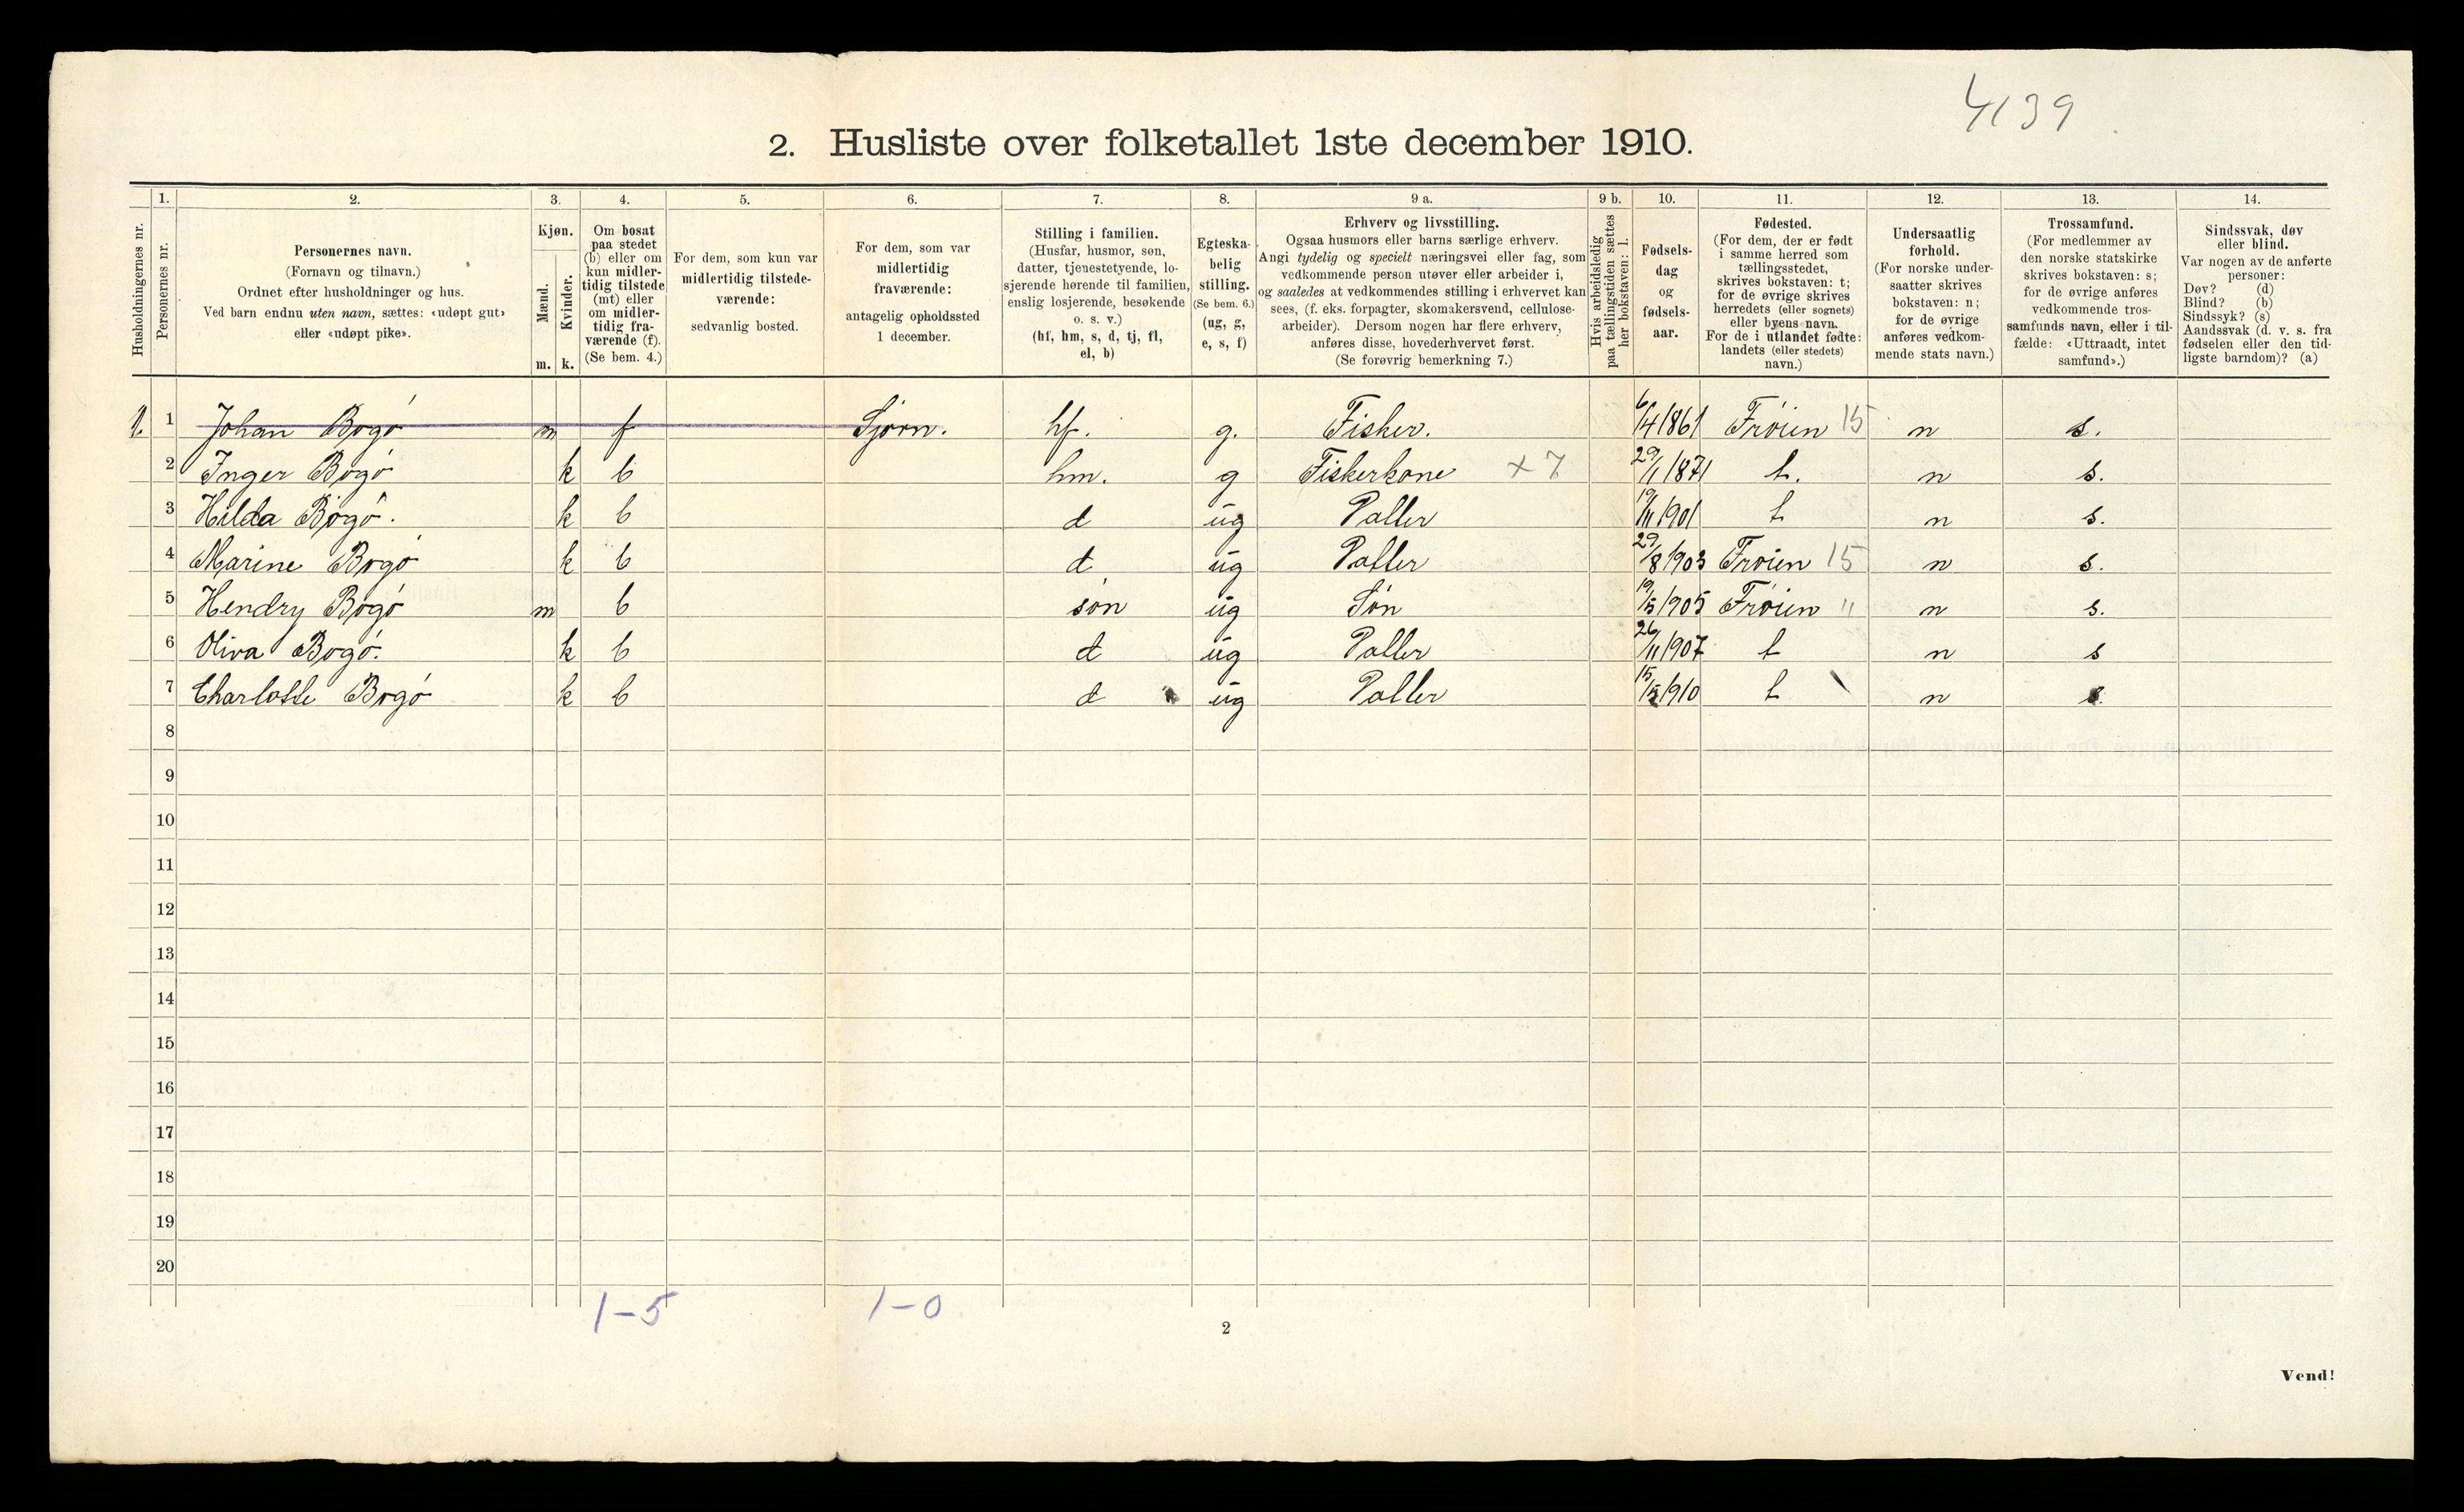 4139
2. Husliste over folketallet 1ste december 1910.
Husholdningernes nr.
1.
Personernes nr.
2.
Personernes navn.
(Fornavn og tilnavn.)
Ordnet efter husholdninger og hus.
Ved barn endnu uten navn, sættes: «udøpt gut»
eller «udøpt pike».
3.
Kjøn.
Mænd.
m.
Kvinder.
k.
4.
Om bosat
paa stedet
(b) eller om
kun midler-
tidig tilstede
(mt) eller
om midler-
tidig fra-
værende (f).
(Se bem. 4.)
5.
For dem, som kun var
midlertidig tilstede-
værende:
sedvanlig bosted.
6.
For dem, som var
midlertidig
fraværende:
antagelig opholdssted
1 december.
7.
Stilling i familien.
(Husfar, husmor, søn,
datter, tjenestetyende, lo-
sjerende hørende til familien,
enslig losjerende, besøkende
o. s. v.)
(hf, hm, s, d, tj, fl,
el, b)
8.
Egteska-
belig
stilling.
(Se bem. 6.)
(ug, g,
e, s, f)
9 a.
Erhverv og livsstilling.
Ogsaa husmors eller barns særlige erhverv.
Angi tydelig og specielt næringsvei eller fag, som
vedkommende person utøver eller arbeider i,
og saaledes at vedkommendes stilling i erhvervet kan
sees, (f. eks. forpagter, skomakersvend, cellulose-
arbeider). Dersom nogen har flere erhverv,
anføres disse, hovederhvervet først.
(Se forøvrig bemerkning 7.)
9 b.
Hvis arbeidsledig
paa tællingstiden sættes
her bokstaven: l.
10.
Fødsels-
dag
og
fødsels-
aar.
11.
Fødested.
(For dem, der er født
i samme herred som
tællingsstedet,
skrives bokstaven: t;
for de øvrige skrives
herredets (eller sognets)
eller byens navn.
For de i utlandet fødte:
landets (eller stedets)
navn.)
12.
Undersaatlig
forhold.
(For norske under-
saatter skrives
bokstaven: n;
for de øvrige
anføres vedkom-
mende stats navn.)
13.
Trossamfund.
(For medlemmer av
den norske statskirke
skrives bokstaven: s;
for de øvrige anføres
vedkommende tros-
samfunds navn, eller i til-
fælde: «Uttraadt, intet
samfund».)
14.
Sindssvak, døv
eller blind.
Var nogen av de anførte
personer:
Døv? (d)
Blind? (b)
Sindssyk? (s)
Aandssvak (d. v. s. fra
fødselen eller den tid-
ligste barndom)? (a)
1. 1 Johan Bogó m f Sjørn. hf. g. Fisker. 6/4 1861 Frøien 15 n s.
2 Inger Bogó k b hm. g Fiskerkone x 7 29/1 1871 t. n s.
3 Hilda Bogó. k b d ug Datter 19/11 1901 t n s.
4 Marine Bogó k b d ug Datter 29/8 1903 Frøien 15 n s.
5 Hendry Bogó m b søn ug Søn 19/5 1905 Frøien " n s.
6 Oliva Bogó. k b d ug Datter 26/11 1907 t n s
7 Charlotte Bogó k b d ug Datter 15/5 1910 t n s.
8
9
10
11
12
13
14
15
16
17
18
19
20
1-5 1-0
2
Vend!